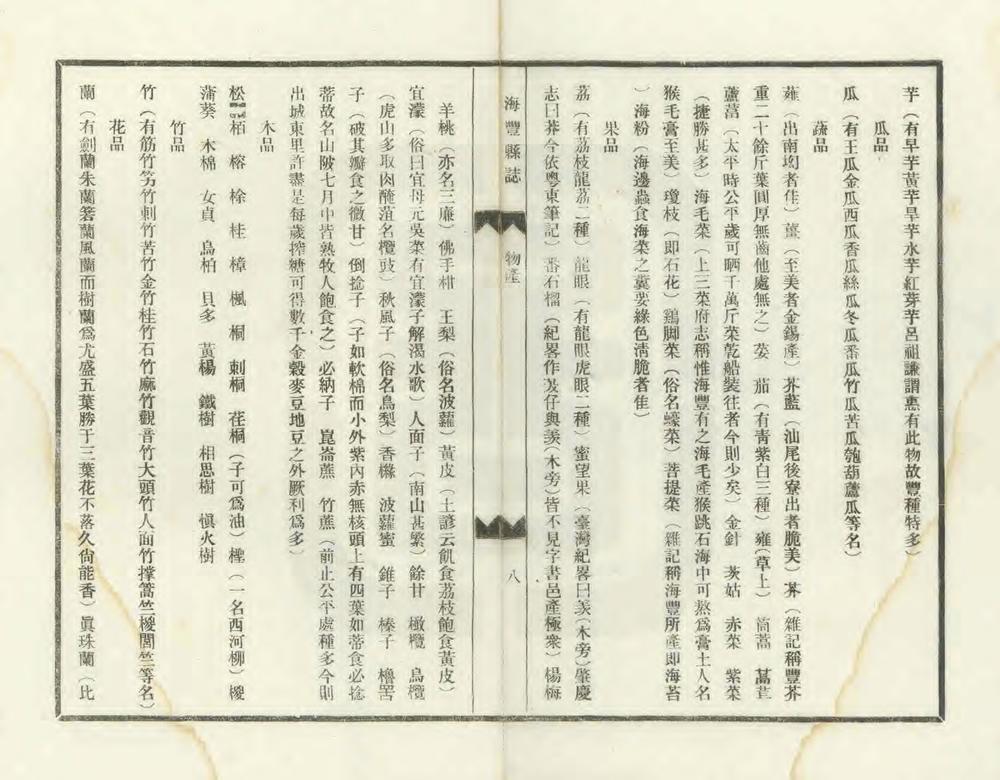 芋（有早芋黃芋旱芋水芋紅芽芋呂祖謙謂惠有此物故豐種特多）
瓜品
瓜（有王瓜金瓜西瓜香瓜絲瓜冬瓜番瓜瓜竹瓜苦瓜匏葫蘆瓜等名）
蔬品
蕹（出南坳者佳）薑（至美者金錫產）芥藍（汕尾後寮出者脆美）芥（雜記稱豐芥
重二十餘斤葉圓厚無齒他處無之）荽　茄（有青紫白三種）雍（草上）　茼蒿　萵苣
蘆菔（太平時公平歲可晒千萬斤菜乾船裝往者今則少矣）　金針　茨姑　赤菜　紫菜
（捷勝甚多）海毛菜（上三菜府志稱惟海豐有之海毛產猴跳石海中可熬爲膏土人名
猴毛膏至美）瓊枝（即石花）鷄脚菜（俗名蠔菜）菩提菜（雜記稱海豐所產即海苔
）海粉（海邊蟲食海菜之糞要綠色清脆者佳）
果品
荔（有荔枝龍荔二種）龍眼（有龍眼虎眼二種）蜜望果（臺灣紀畧曰羨（木旁）肇慶
志曰莽今依粵東筆記）番石榴（紀畧作芨仔與羨（木旁）皆不見字書邑產極衆）楊梅
海豐縣誌　物產　八
羊桃（亦名三廉）佛手柑　王梨（俗名波蘿）黃皮（土諺云飢食荔枝飽食黃皮）
宜濛（俗曰宜母元吳萊有宜濛子解渴水歌）人面子（南山甚繁）餘甘　橄欖　烏欖
（虎山多取肉醃菹名欖豉）秋風子（俗名烏梨）香櫞　波蘿蜜　錐子　榛子　櫓罟
子（破其瓣食之微甘）倒捻子（子如軟棉而小外紫內赤無核頭上有四葉如蒂食必捻
蒂故名山陂七月中皆熟牧人飽食之）必納子　崑崙蔗　竹蔗（前止公平處種多今則
出城東里許盡是每歲搾糖可得數千金穀麥豆地豆之外厥利爲多）
木品
松　栢　榕　桂　樟　楓　桐　刺桐　荏桐（子可爲油）檉（一名西河柳）椶
蒲葵　木棉　女貞　烏柏　貝多　黃楊　鐵樹　相思樹　愼火樹
竹品
竹（有筋竹竻竹刺竹苦竹金竹桂竹石竹麻竹觀音竹大頭竹人面竹撑篙竺椶閭竺等名）
花品
蘭（有劍蘭朱蘭箬蘭風蘭而樹蘭爲尤盛五葉勝于三葉花不落久尙能香）眞珠蘭（比